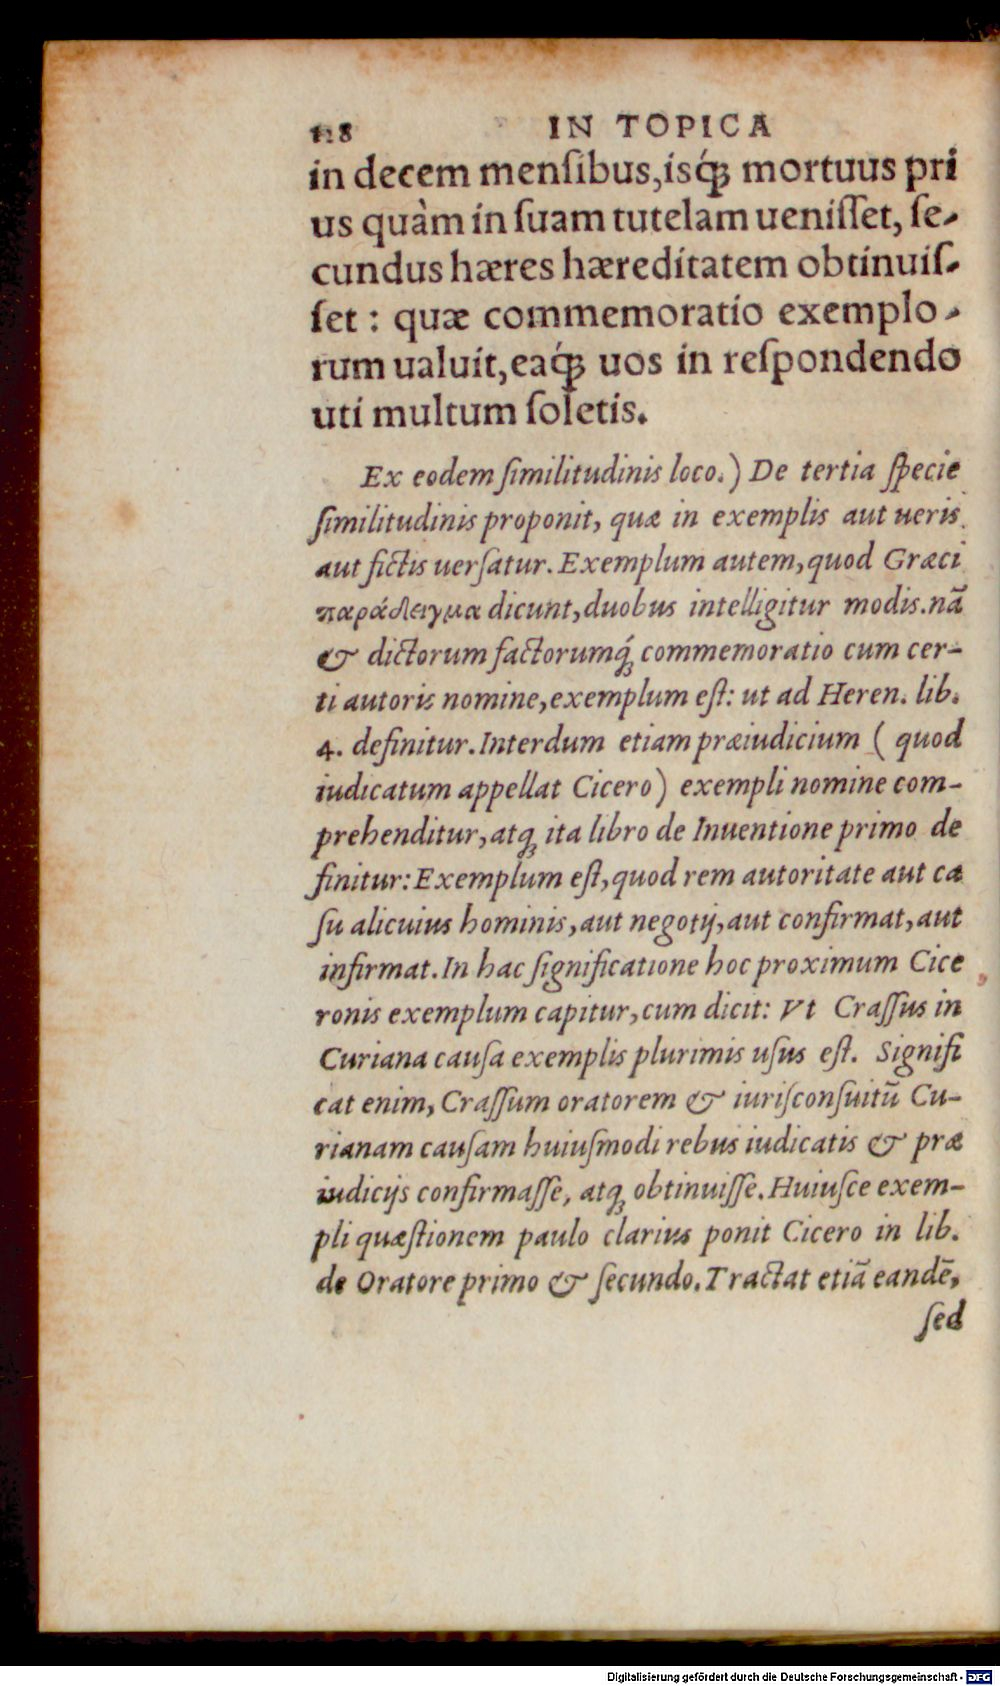 128 IN TOPICA
in decem mensibus, isq́ꝫ mortuus pri
us quàm in suam tutelam uenisset, se-
cundus hæres hæreditatem obtinuis-
set : quæ commemoratio exemplo-
rum ualuit, eaq́ꝫ uos in respondendo
uti multum soletis.
Ex eodem similitudinis loco.) De tertia specie
similitudinis proponit, quæ in exemplis aut ueris
aut fictis uersatur. Exemplum autem, quod Græci
παράδειγμα dicunt, duobus intelligitur modis. nã
& dictorum factorumq́ꝫ commemoratio cum cer-
ti autoris nomine, exemplum est: ut ad Heren. lib.
4. definitur. Interdum etiam præiudicium ( quod
iudicatum appellat Cicero) exempli nomine com-
prehenditur, atqꝫ ita libro de Inuentione primo de
finitur: Exemplum est, quod rem autoritate aut ca
su alicuius hominis, aut negotij, aut confirmat, aut
infirmat. In hac significatione hoc proximum Cice
ronis exemplum capitur, cum dicit: Vt Crassus in
Curiana causa exemplis plurimis usus est. Signifi
cat enim, Crassum oratorem & iurisconsuitũ Cu-
rianam causam huiusmodi rebus iudicatis & præ
iudicijs confirmasse, atqꝫ obtinuisse. Huiusce exem-
pli quæstionem paulo clarius ponit Cicero in lib.
de Oratore primo & secundo. Tractat etiã eandẽ,
sed
Digitalisierung gefördert durch die Deutsche Forschungsgemeinschaft - DFG